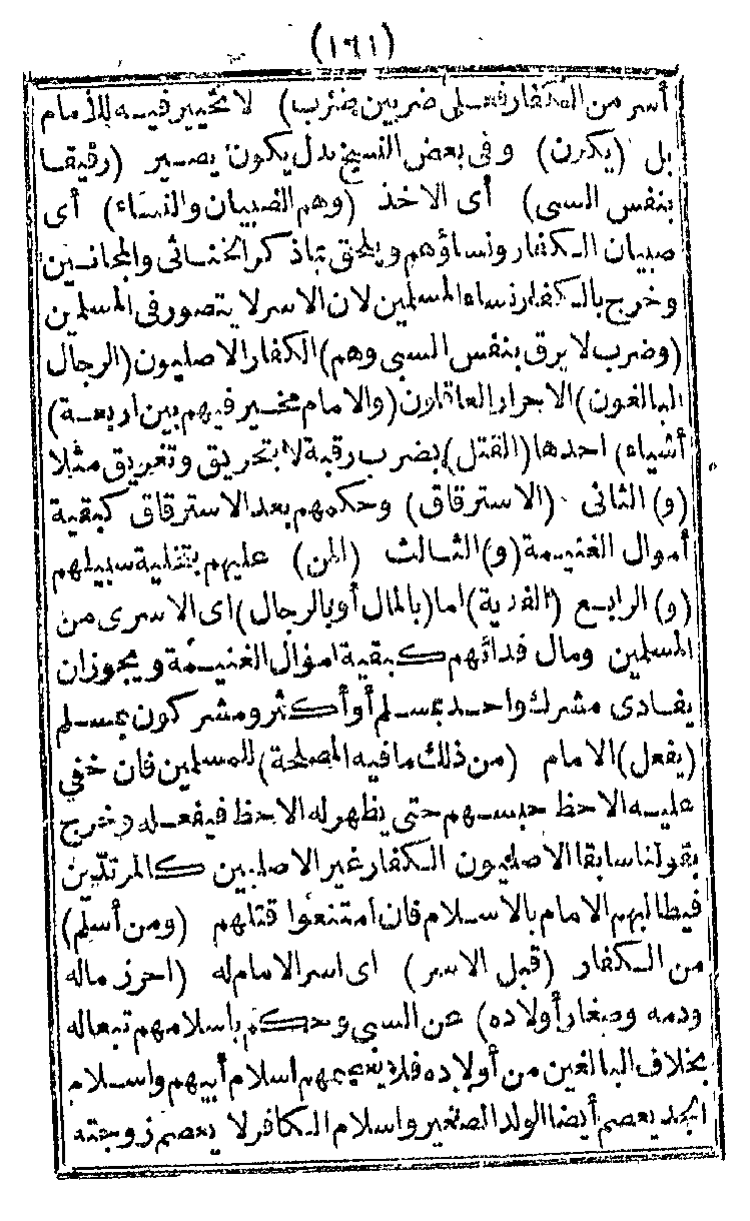 (١٦١)
أسر من الكفار فعلى ضربين ضرب) لا تخيير فيه للامام
بل (يكون) وفى بعض النسخ بدل يكون يصير (رقيقا
بنفس السبى) أى الاخذ (وهم الصبيان والنساء) أى
صبيان الكفار ونساؤهم ويلحق بماذكر الخنائى والمجانين
وخرج بالكفار نساء المسلمين لان الاسر لا يتصور فى المسلمين
(وضرب لا يرق بنفس السبى وهم) الكفار الاصليون (الرجال
البالغون) الاحرار العاقلون (والامام مخير فيهم بين اربعة
أشياء) احدها (القتل) بضرب رقبة لا بتحريق وتغريق مثلا
(و) الثانى (الاسترقاق) وحكمهم بعد الاسترقاق كبقية
أموال الغنيمة (و) الثالث (المن) عليهم بتخلية سبيلهم
(و) الرابع (الفدية) اما (بالمال أو بالرجال) اى الاسرى من
المسلمين ومال فدائهم كبقية اموال الغنيمة ويجوزان
يفادى مشرك واحد بمسلم أو أكثر ومشركون بمسلم
(يفعل) الامام (من ذلك ما فيه المصلحة) للمسلمين فان خفي
عليه الاحظ حبسهم حتى يظهر له الاحظ فيفعله وخرج
بقولنا سابقا الاصليون الكفار غير الاصليين كالمرتدّين
فيطالبهم الامام بالاسلام فان امتنعوا قتلهم (ومن أسلم)
من الكفار (قبل الاسر) اى اسر الامام له (احرز ماله
ودمه وصغار أولاده) عن السبى وحكم باسلامهم تبعا له
بخلاف البالغين من أولاده فلا يعصمهم اسلام أبيهم واسلام
الجد يعصم أيضا الولد الصغير واسلام الكافر لا يعصم زوجته